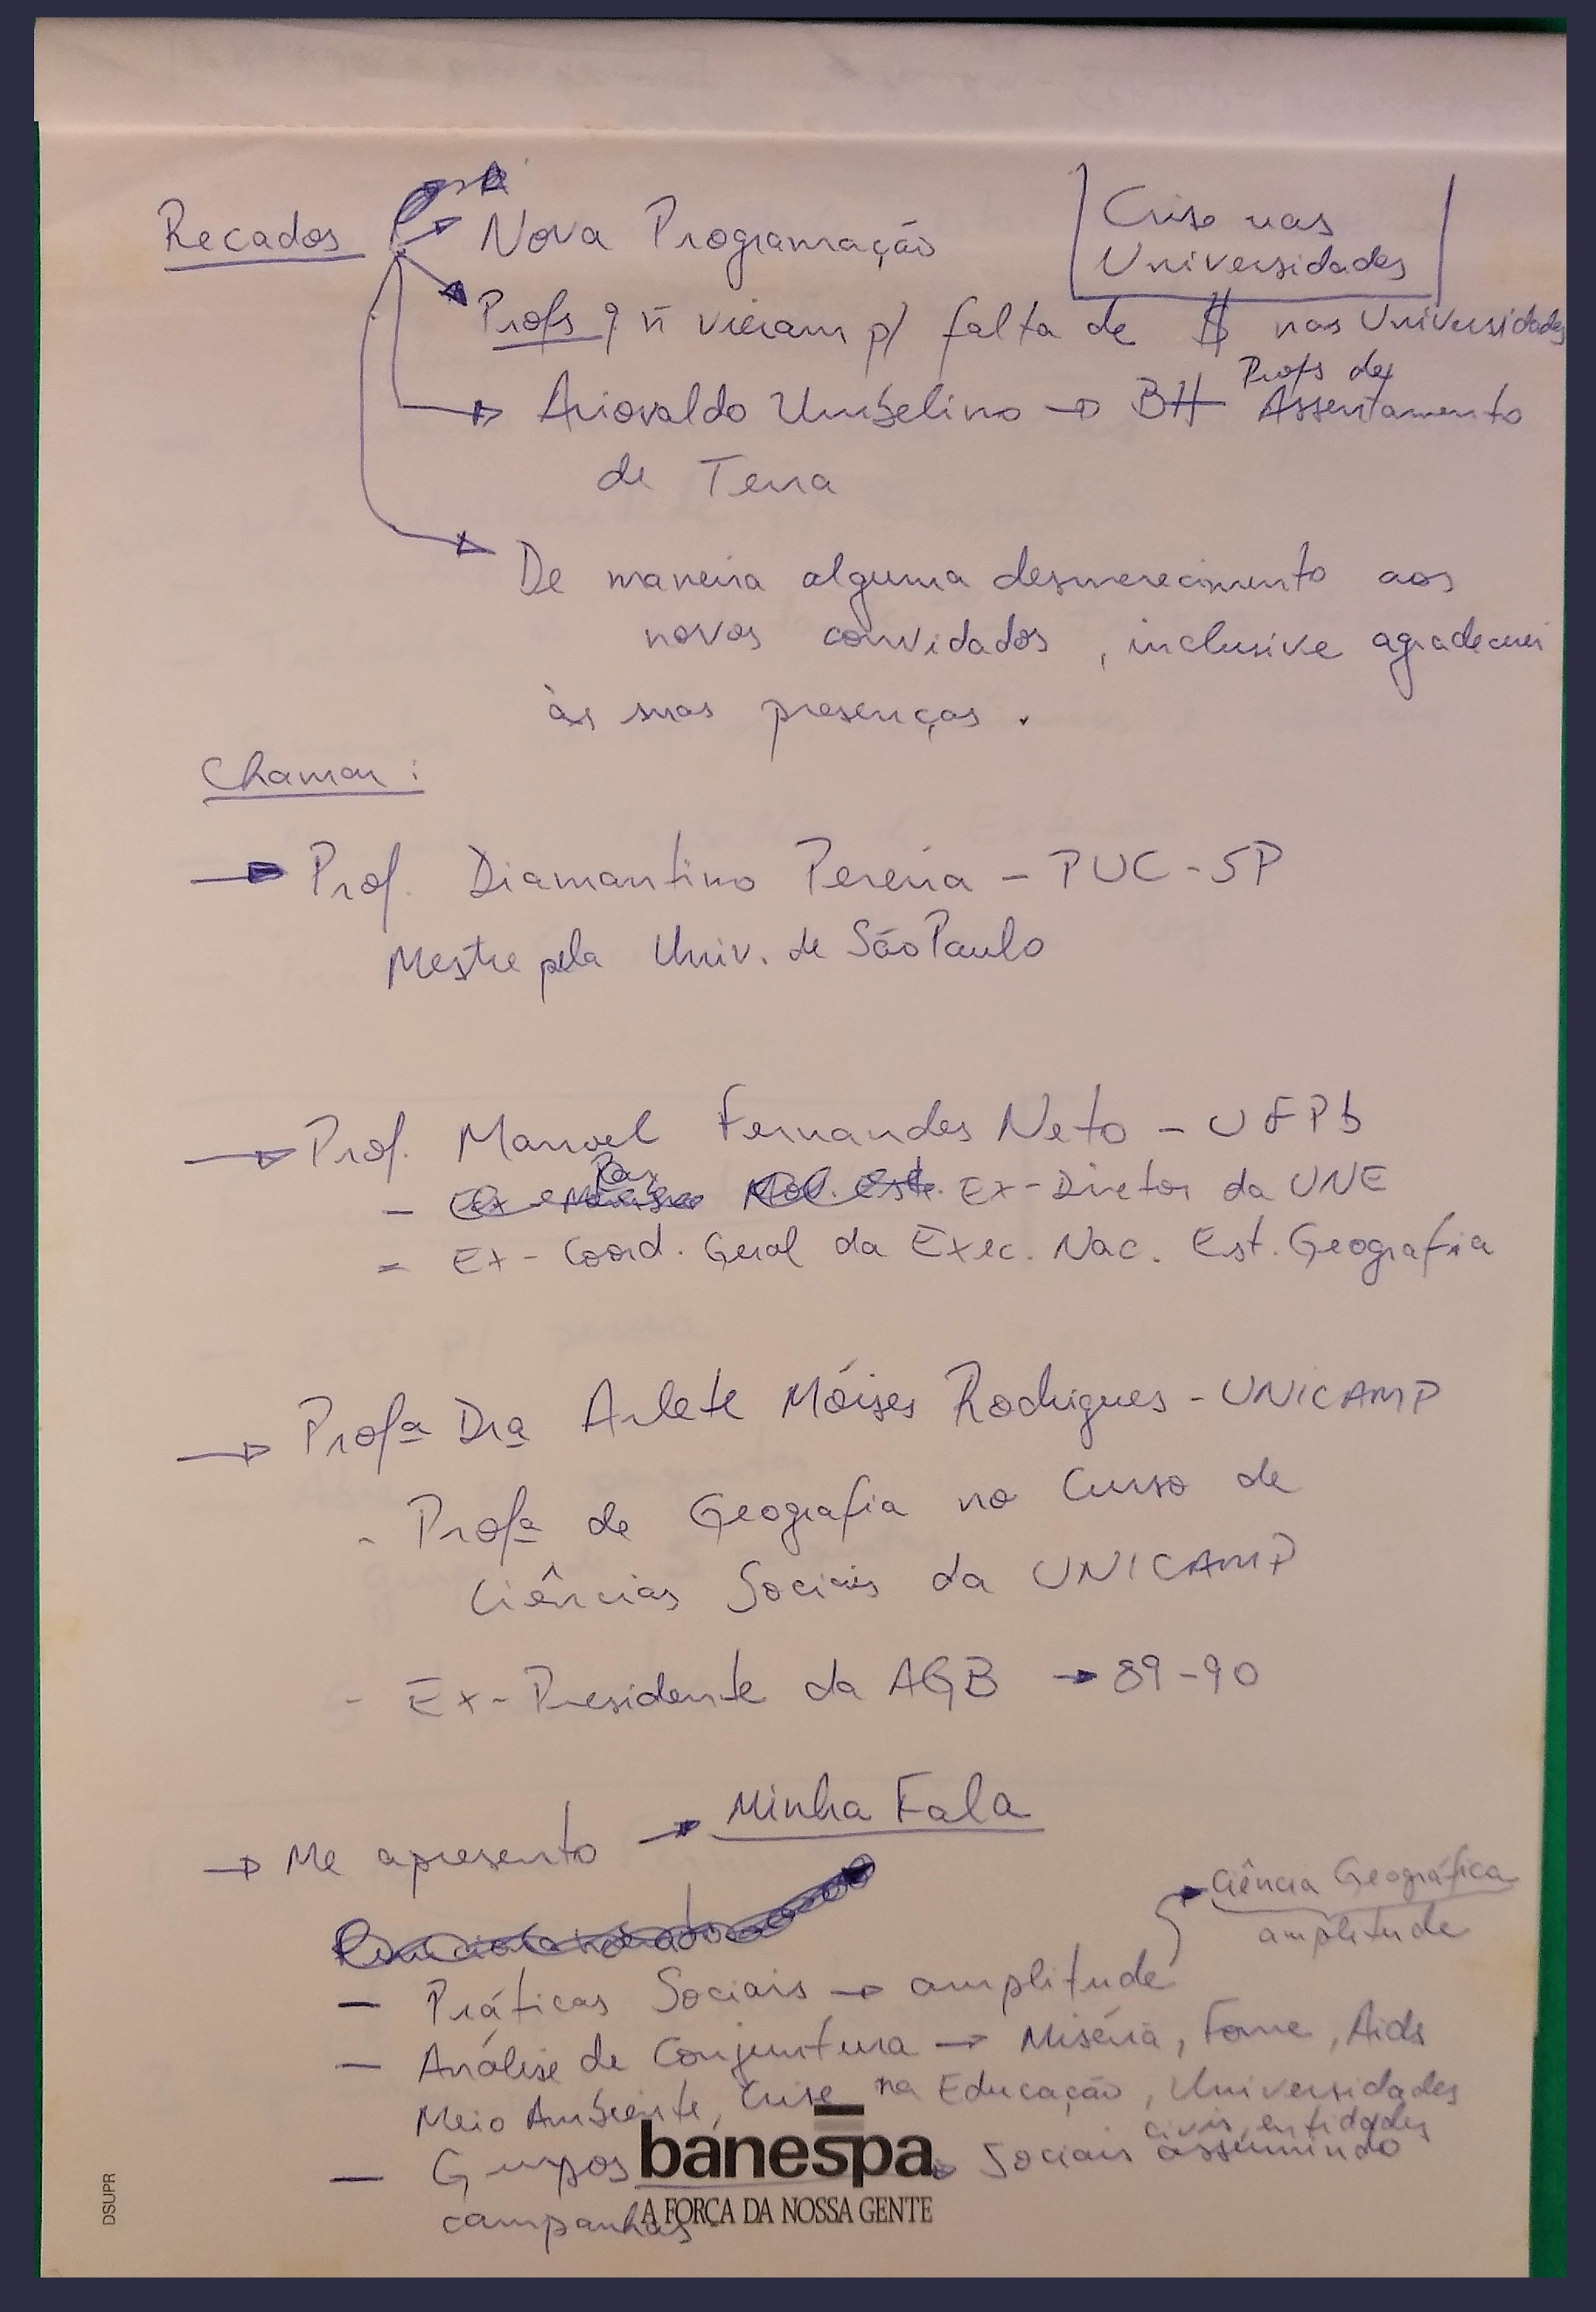 Recados → Nova Programação
Crise nas
Universidades
→ Profs q ñ vieram p/ falta de $ nas Universidades
→ Ariovaldo Umbelino → BH Profs de Assentamento
de Terra
→ De maneira alguma desmerecimento aos
novos convidados, inclusive agradecer
às suas presenças.
Chamar:
→ Prof. Diamantino Pereira - PUC-SP
Mestre pela Univ. de São Paulo
→ Prof. Manoel Fernandes Neto - UFPb
- Ex-Diretor da UNE
- Ex-Coord. Geral da Exec. Nac. Est. Geografia
→ Profª Drª Arlete Móises Rodrigues - UNICAMP
- Profª de Geografia no Curso de
Ciências Sociais da UNICAMP
- Ex-Presidente da AGB → 89-90
→ Me apresento → Minha Fala
→ Ciência Geográfica
amplitude
- Práticas Sociais → amplitude
- Análise de Conjuntura → Miséria, Fome, Aids
Meio Ambiente, Crise na Educação, Universidades
civis, entidades
- Grupos Sociais assumindo
campanhas
banespa
A FORÇA DA NOSSA GENTE
DSUPR